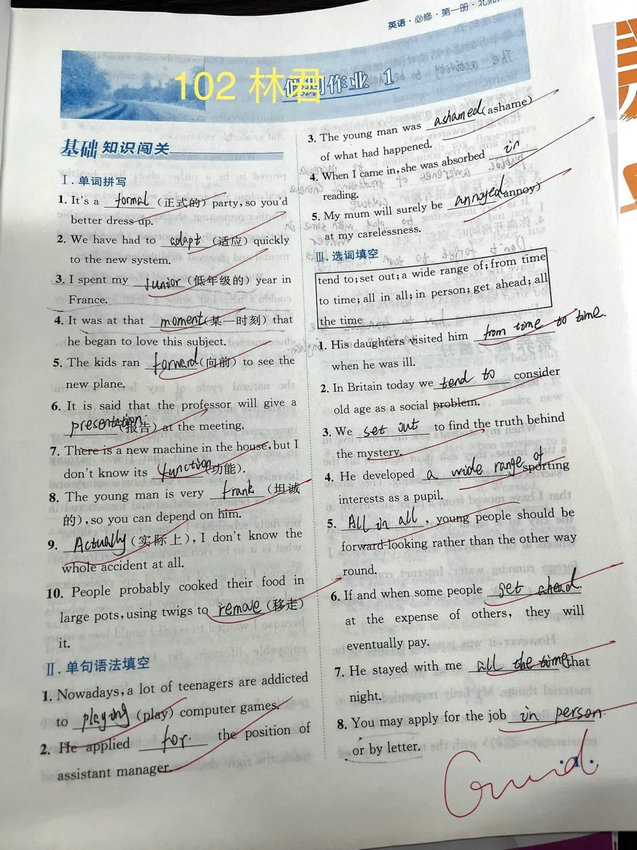 英语·必修·第一册·北
102 林君
假期作业 1
基础知识闯关
Ⅰ.单词拼写
1. It's a formal (正式的) party, so you'd
better dress up.
2. We have had to adapt (适应) quickly
to the new system.
3. I spent my junior (低年级的) year in
France.
4. It was at that moment (某一时刻) that
he began to love this subject.
5. The kids ran forward (向前) to see the
new plane.
6. It is said that the professor will give a
presentation (报告) at the meeting.
7. There is a new machine in the house, but I
don't know its function (功能).
8. The young man is very frank (坦诚
的), so you can depend on him.
9. Actually (实际上), I don't know the
whole accident at all.
10. People probably cooked their food in
large pots, using twigs to remove (移走)
it.
Ⅱ.单句语法填空
1. Nowadays, a lot of teenagers are addicted
to playing (play) computer games.
2. He applied for the position of
assistant manager.
3. The young man was ashamed (ashame)
of what had happened.
4. When I came in, she was absorbed in
reading.
5. My mum will surely be annoyed (annoy)
at my carelessness.
Ⅲ.选词填空
tend to; set out; a wide range of; from time
to time; all in all; in person; get ahead; all
the time
1. His daughters visited him from time to time
when he was ill.
2. In Britain today we tend to consider
old age as a social problem.
3. We set out to find the truth behind
the mystery.
4. He developed a wide range of sporting
interests as a pupil.
5. All in all, young people should be
forward-looking rather than the other way
round.
6. If and when some people get ahead
at the expense of others, they will
eventually pay.
7. He stayed with me all the time that
night.
8. You may apply for the job in person
or by letter.
Good.